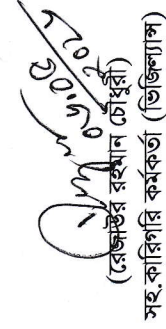 (রেজাউর রহমান চৌধুরী)
সহ.কারিগরি কর্মকর্তা (ভিজিল্যান্স)